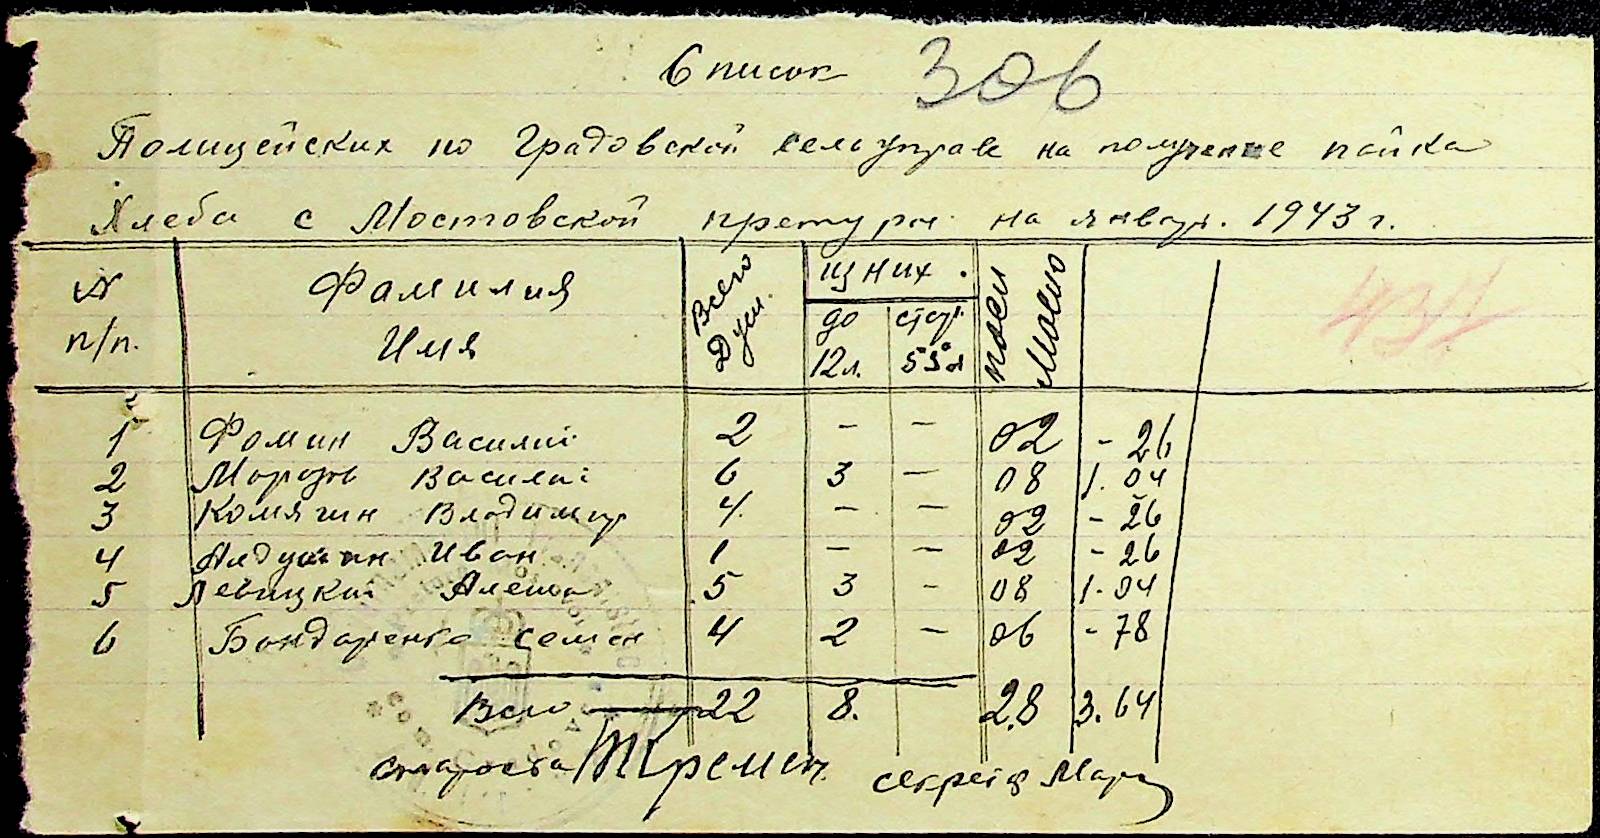 Список 306
Полицейских по Градовской сельуправе на получение пайка
Хлеба с Мостовской претуры на январ. 1943 г.
N п/п. Фамилия Имя Всего Душ. из них. до 12 л. стар. 55 л
431
1 Фомин Василий 2 - - 02 - 26
2 Морозъ Василий 6 3 - 08 1.04
3 Комягин Владимир 4. - - 02 - 26
4 Алдушин Иван 1 - - 02 - 26
5 Левицкий Алеша 5 3 - 08 1.04
6 Бондаренко Семен 4 2 - 06 - 78
Всего 22 8. 2.8 3.64
староста секрет